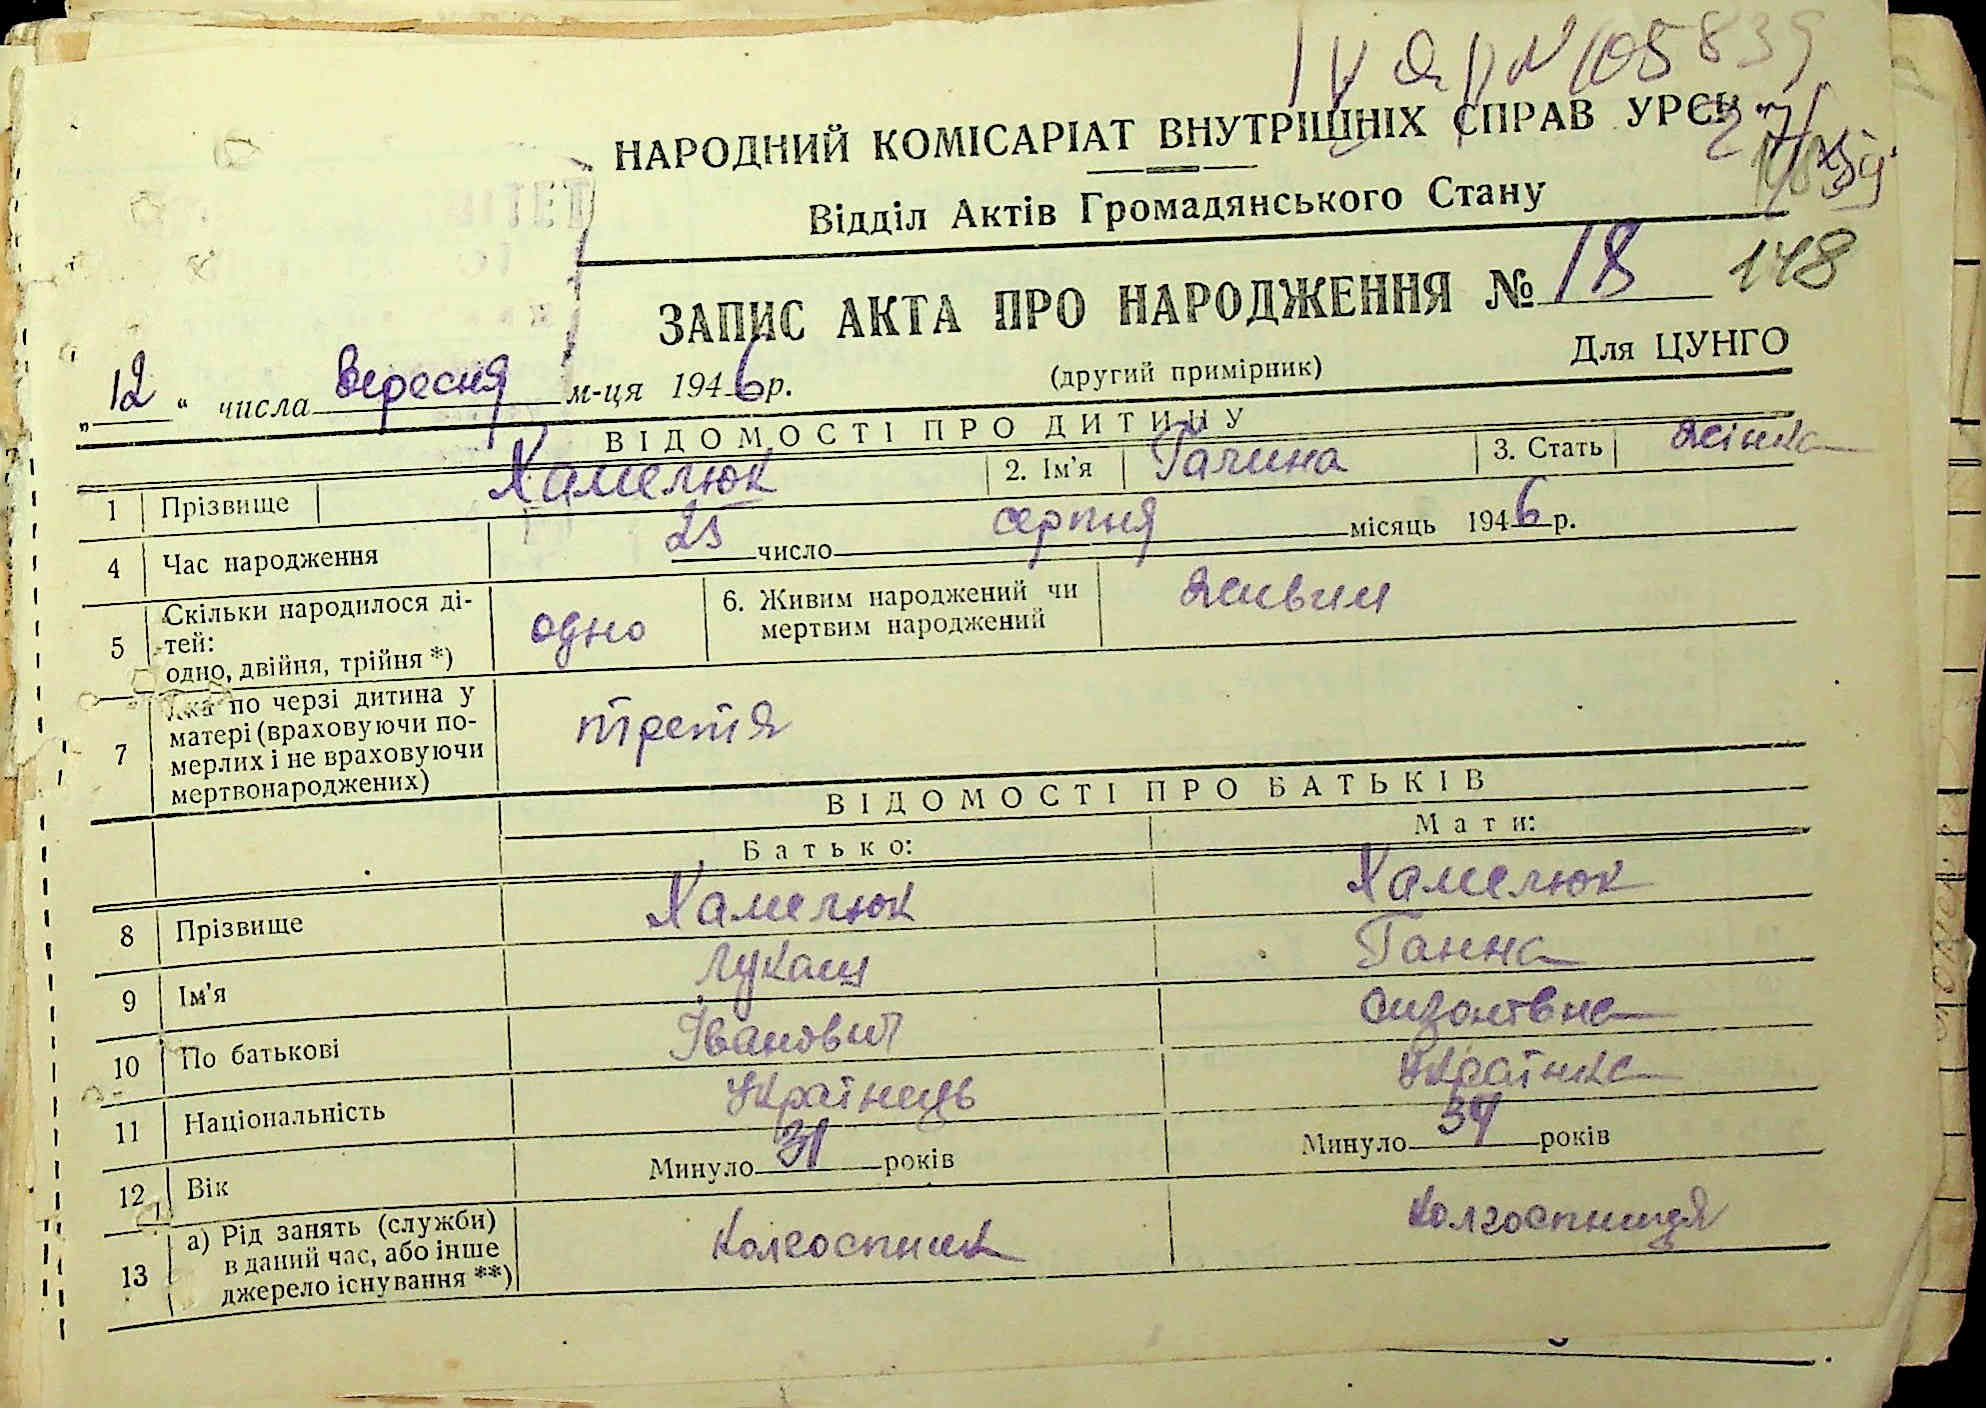 IV Я П № 105839
НАРОДНИЙ КОМІСАРІАТ ВНУТРІШНІХ СПРАВ УРСР
Відділ Актів Громадянського Стану
148
ЗАПИС АКТА ПРО НАРОДЖЕННЯ № 18
„12“ числа вересня м-ця 1946 р. (другий примірник) Для ЦУНГО
ВІДОМОСТІ ПРО ДИТИНУ
1 Прізвище Хамелюк 2. Ім'я Галина 3. Стать жінка
4 Час народження 25 число серпня місяць 1946 р.
5 Скільки народилося ді-
тей:
одно, двійня, трійня *) одно 6. Живим народжений чи
мертвим народжений живим
7 Яка по черзі дитина у
матері (враховуючи по-
мерлих і не враховуючи
мертвонароджених) третя
ВІДОМОСТІ ПРО БАТЬКІВ
Батько: Мати:
8 Прізвище Хамелюк Хамелюк
9 Ім'я Лукаш Ганна
10 По батькові Іванович Сизонтвна
11 Національність Українець Українка
12 Вік Минуло 31 років Минуло 34 років
13 а) Рід занять (служби)
в даний час, або інше
джерело існування **) Колгоспник Колгоспниця